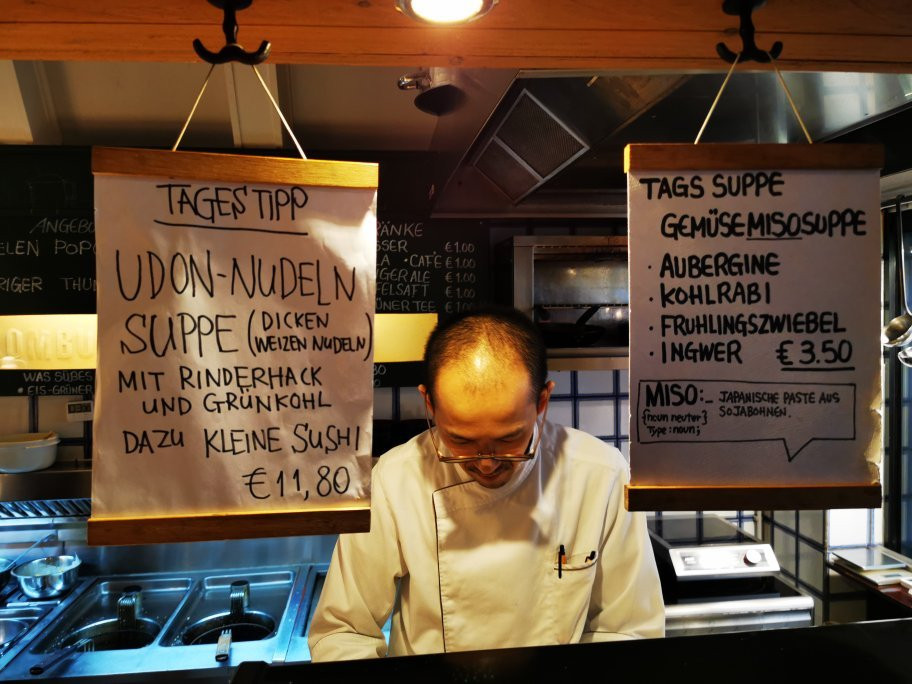 TAGES TIPP
UDON-NUDELN
SUPPE (DICKEN
WEIZEN NUDELN)
MIT RINDERHACK
UND GRÜNKOHL
DAZU KLEINE SUSHI
€11,80
TAGS SUPPE
GEMÜSE MISOSUPPE
· AUBERGINE
· KOHLRABI
· FRUHLINGSZWIEBEL
· INGWER €3.50
MISO:- JAPANISCHE PASTE AUS
{noun neuter} SOJABOHNEN.
Type: noun;
ANGEBO
ELEN POPO
RIGER THU
OMBU
WAS SÜßES
• EIS-GRÜNER
RÄNKE
SSER €1.00
LA • CAFE €1.00
GER ALE €1.00
FELSAFT €1.00
ÜNER TEE €1.00